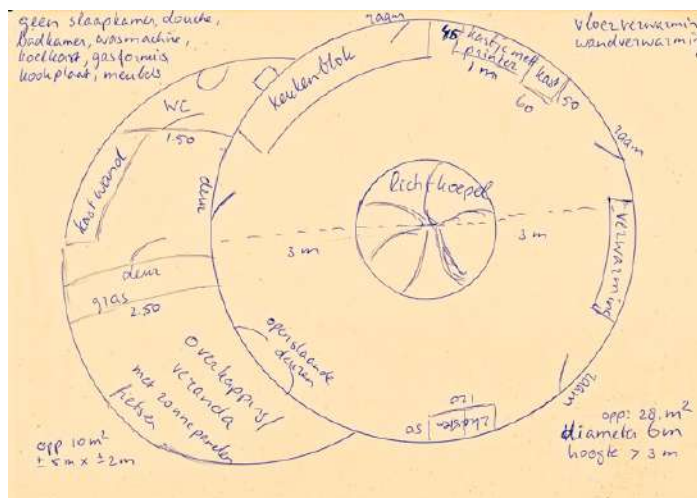 geen slaapkamer, douche,
badkamer, wasmachine,
koelkast, gasfornuis
kookplaat, meubels
raam
vloerverwarmin
wandverwarmin
45 kastje met
printer
1 m
kast
50
60
keukenblok
WC
1.50
kastwand
deur
raam
lichtkoepel
3 m
3 m
verwarming
deur
gras
2.50
openslaande
deuren
overkapping/
veranda
met zonnepanelen
fietsen
raam
120
2 kasten
50
opp 10 m²
± 5m x ± 2m
opp: 28 m²
diameter 6m
hoogte > 3 m